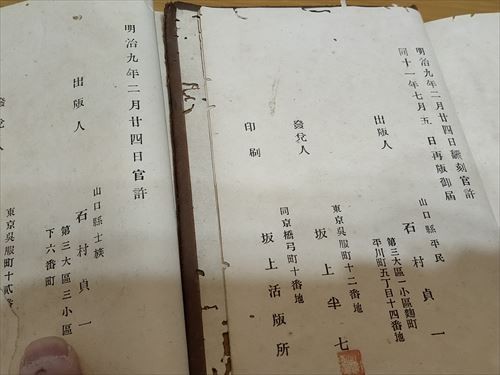 明治九年二月廿四日飜刻官許
同十一年七月五日再版御届
山口縣平民
出版人 石村貞一
第三大區一小區麹町
平川町五丁目十四番地
東京呉服町十二番地
發兌人 坂上半七
同京橋弓町十番地
印刷 坂上活版所
明治九年二月廿四日官許
山口縣士族
出版人 石村貞一
第三大區三小區
下六番町
東京呉服町十貳番
發兌人